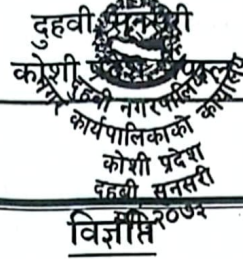 दुहवी सुनसरी
कोशी
दुहवी नगरपालिका
नगर कार्यपालिकाको कार्यालय
कोशी प्रदेश
दुहवी सुनसरी
२०७३
विज्ञप्ति